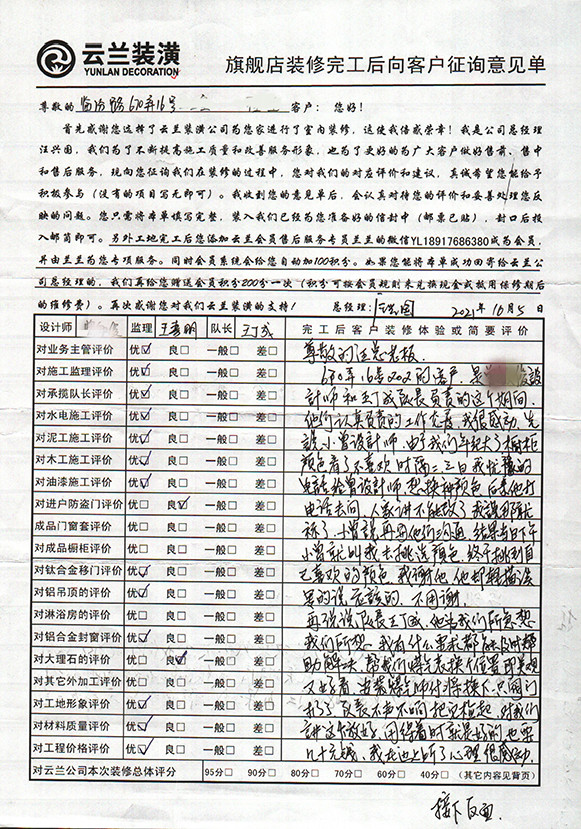 云兰装潢
YUNLAN DECORATION
旗舰店装修完工后向客户征询意见单
尊敬的 临汾路670弄16号 客户： 您好！
首先感谢您选择了云兰装潢公司为您家进行了室内装修，这使我倍感荣幸！我是公司总经理
汪兴国，我们为了不断提高施工质量和改善服务形象，也为了更好的为广大客户做好售前、售中
和售后服务，现向您征询我们在装修的过程中，您对我们的对应评价和建议，真诚希望您能给予
积极参与（没有的项目写无即可）。我收到您的意见单后，会认真对待您的评价和妥善处理您反
映的问题。您只需将本单填写完整，装入我们已经为您准备好的信封中（邮票已贴），封口后投
入邮筒即可。另外工地完工后您添加云兰会员售后服务专员兰兰的微信YL18917686380成为会员，
并由兰兰为您专项服务。同时会员系统会给您自动加100积分。如果您能将本单成功回寄给云兰公
司总经理的，我们再给您赠送会员积分200分一次（积分可按会员规则来兑换现金或抵用保修期后
的维修费）。再次感谢您对我们云兰装潢的支持！ 总经理： 2021年10月5日
设计师 监理 王春明 队长 王丁成 完工后客户装修体验或简要评价
对业务主管评价 优☑ 良□ 一般□ 差□ 尊敬的汪总老板.
对施工监理评价 优☑ 良□ 一般□ 差□ 670弄16号202的客户，是
对承揽队长评价 优☑ 良□ 一般□ 差□ 计师和王丁成队长负责的这个期间.
对水电施工评价 优☑ 良□ 一般□ 差□ 他们认真负责的工作态度，我很感动，先
对泥工施工评价 优☑ 良□ 一般□ 差□ 说小曾设计师，由于我们年纪大了橱柜
对木工施工评价 优☑ 良□ 一般□ 差□ 颜色看了不喜欢时隔二三日我
对油漆施工评价 优☑ 良□ 一般□ 差□ 电话给曾设计师想换种颜色后来他打
对进户防盗门评价 优□ 良☑ 一般□ 差□ 电话去问，人家讲不能改了我
成品门窗套评价 优□ 良□ 一般□ 差□ 小曾说再同他们沟通，结果当日下午
对成品橱柜评价 优□ 良□ 一般□ 差□ 小曾就叫我去挑选颜色，终于挑到自
对钛合金移门评价 优☑ 良□ 一般□ 差□ 己喜欢的颜色，我谢他，他却轻描淡
对铝吊顶的评价 优☑ 良□ 一般□ 差□ 写的说应该的，不用谢.
对淋浴房的评价 优□ 良□ 一般□ 差□ 再说说队长王丁成，他为我们所急想
对铝合金封窗评价 优☑ 良□ 一般□ 差□ 我们所想，我有什么要求都能及时帮
对大理石的评价 优□ 良☑ 一般□ 差□ 助解决，帮我们煤气表换个位置即美观
对其它外加工评价 优□ 良□ 一般□ 差□ 又好看，当装煤气师付将换下
对工地形象评价 优☑ 良□ 一般□ 差□ 队长不声不响把它捡起，对我们
对材料质量评价 优☑ 良□ 一般□ 差□ 讲这个很好，用得着时就是好的也要
对工程价格评价 优☑ 良□ 一般□ 差□ 几十元钱，我在边上听了心里很感动.
对云兰公司本次装修总体评分 95分□ 90分□ 80分□ 70分□ 60分□ 40分□ （其它内容见背页）
接下反面